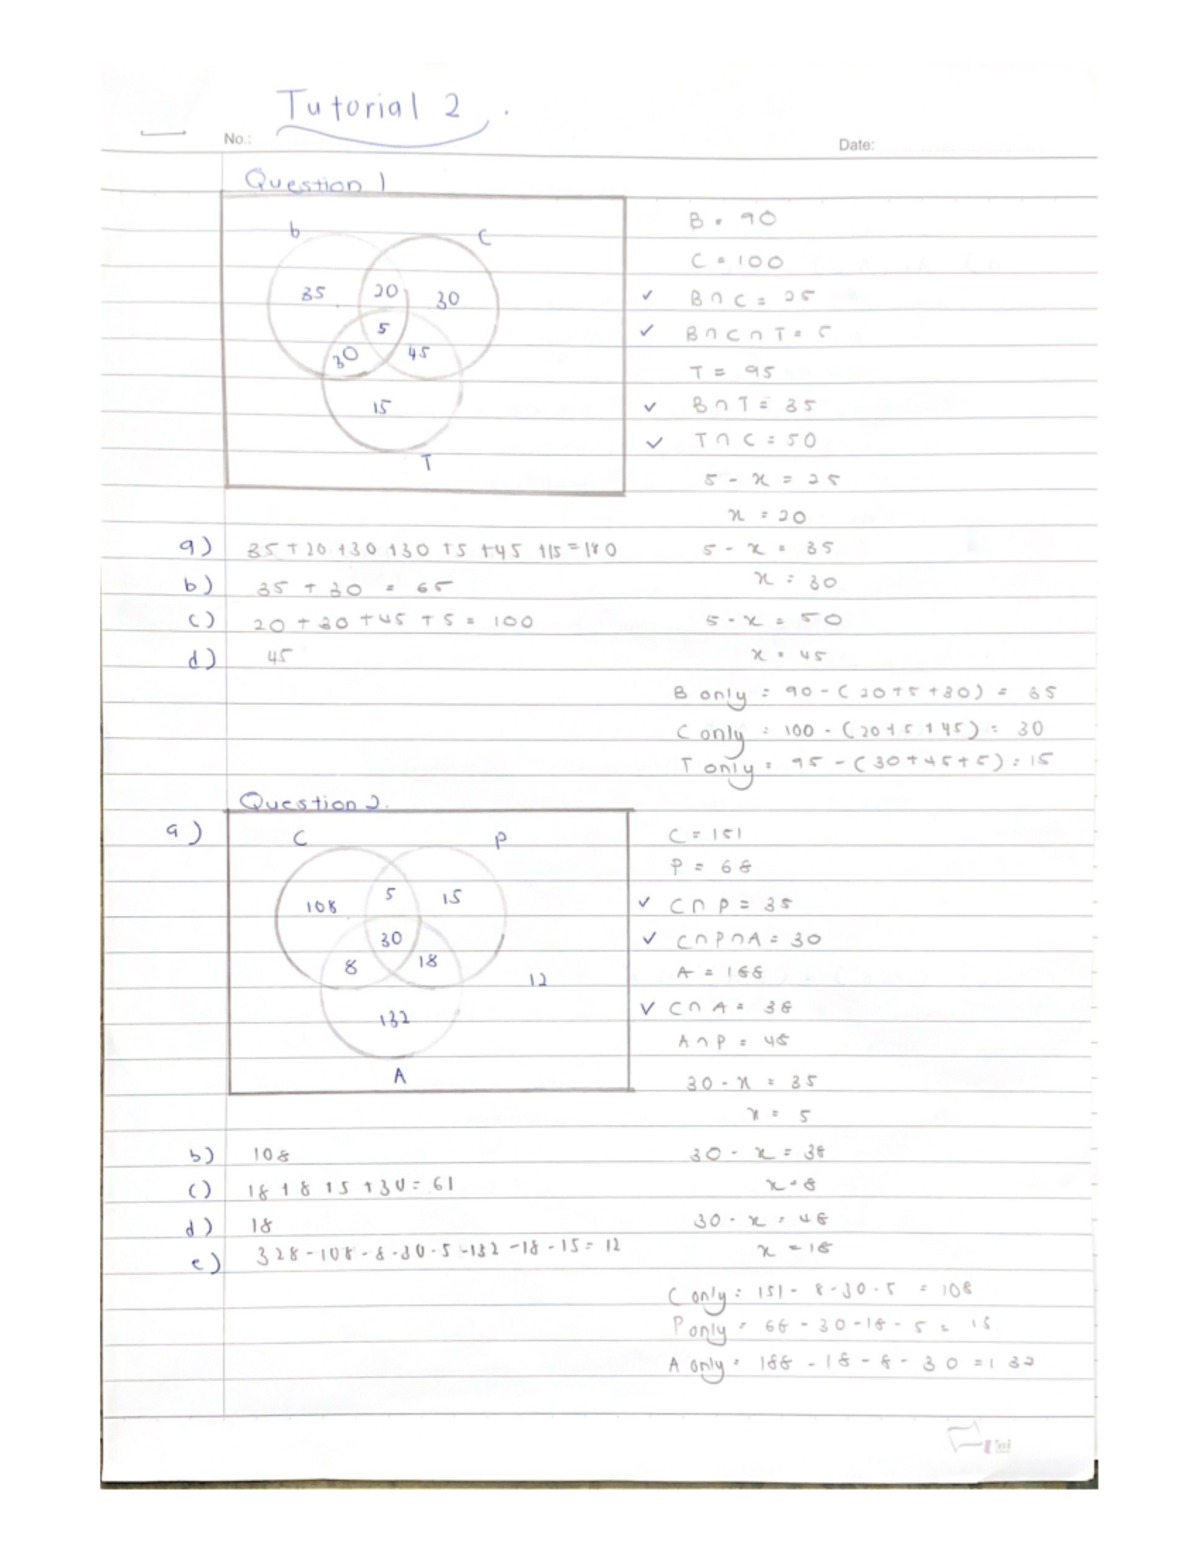 Tutorial 2.
No.:
Date:
Question 1
b
C
35
20
30
5
30
45
15
T
B = 90
C = 100
✓ B ∩ C = 25
✓ B ∩ C ∩ T = 5
T = 95
✓ B ∩ T = 35
✓ T ∩ C = 50
5 - x = 25
x = 20
5 - x = 35
x = 30
5 - x = 50
x = 45
B only = 90 - (20+5+30) = 35
C only = 100 - (20+5+45) = 30
T only = 95 - (30+45+5) = 15
a) 35 + 20 + 30 + 30 + 5 + 45 + 15 = 180
b) 35 + 30 = 65
c) 20 + 30 + 45 + 5 = 100
d) 45
Question 2.
a)
C
P
108
5
15
30
8
18
12
132
A
C = 151
P = 68
✓ C ∩ P = 35
✓ C ∩ P ∩ A = 30
A = 188
✓ C ∩ A = 38
A ∩ P = 48
30 - x = 35
x = 5
30 - x = 38
x = 8
30 - x = 48
x = 18
C only = 151 - 8 - 30 - 5 = 108
P only = 68 - 30 - 18 - 5 = 15
A only = 188 - 18 - 8 - 30 = 132
b) 108
c) 18 + 8 + 5 + 30 = 61
d) 18
e) 328 - 108 - 8 - 30 - 5 - 132 - 18 - 15 = 12